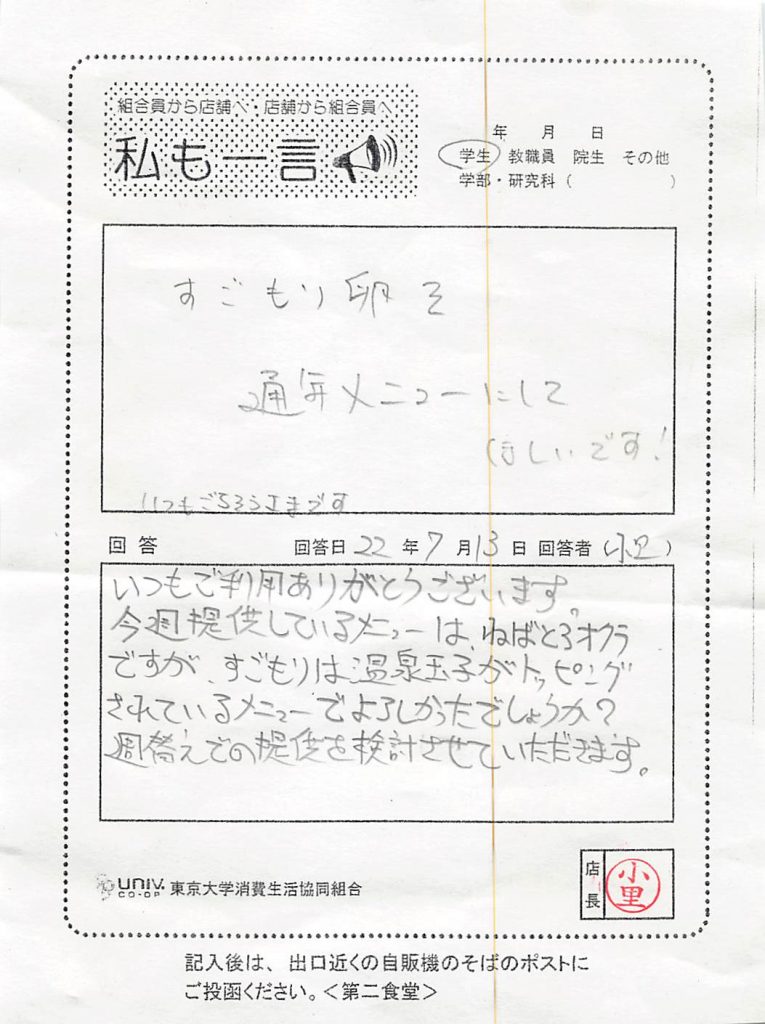 組合員から店舗へ・店舗から組合員へ
私も一言
年 月 日
学生 教職員 院生 その他
学部・研究科（ ）
すごもり卵を
通年メニューにして
ほしいです！
いつもごちそうさまです
回答 回答日 22 年 7 月 13 日 回答者（小里）
いつもご利用ありがとうございます。
今週提供しているメニューは、ねばとろオクラ
ですが、すごもりは温泉玉子がトッピング
されているメニューでよろしかったでしょうか？
週替えでの提供を検討させていただきます。
UNIV. CO-OP 東京大学消費生活協同組合
店長 小里
記入後は、出口近くの自販機のそばのポストに
ご投函ください。＜第二食堂＞